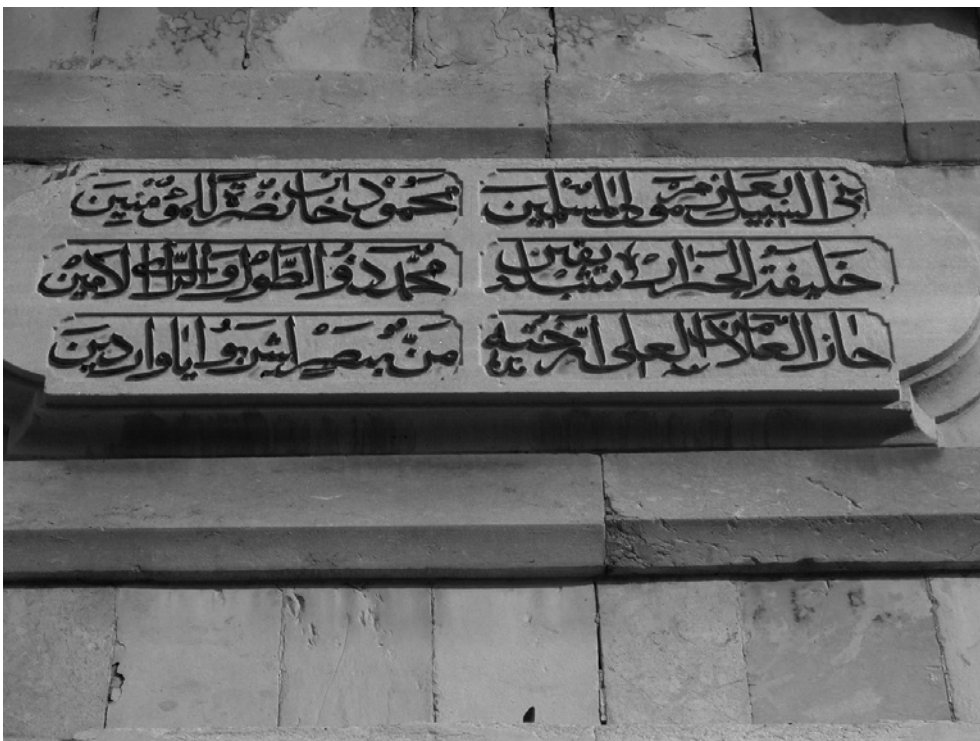 بنى السبيل بعز مولى المسلمين محمود خان نصرة للمؤمنين
خليفة الجزار يقين محمد ذو الطول والرأي الامين
حاز العلى ارخته ليشربوا ايا واردين